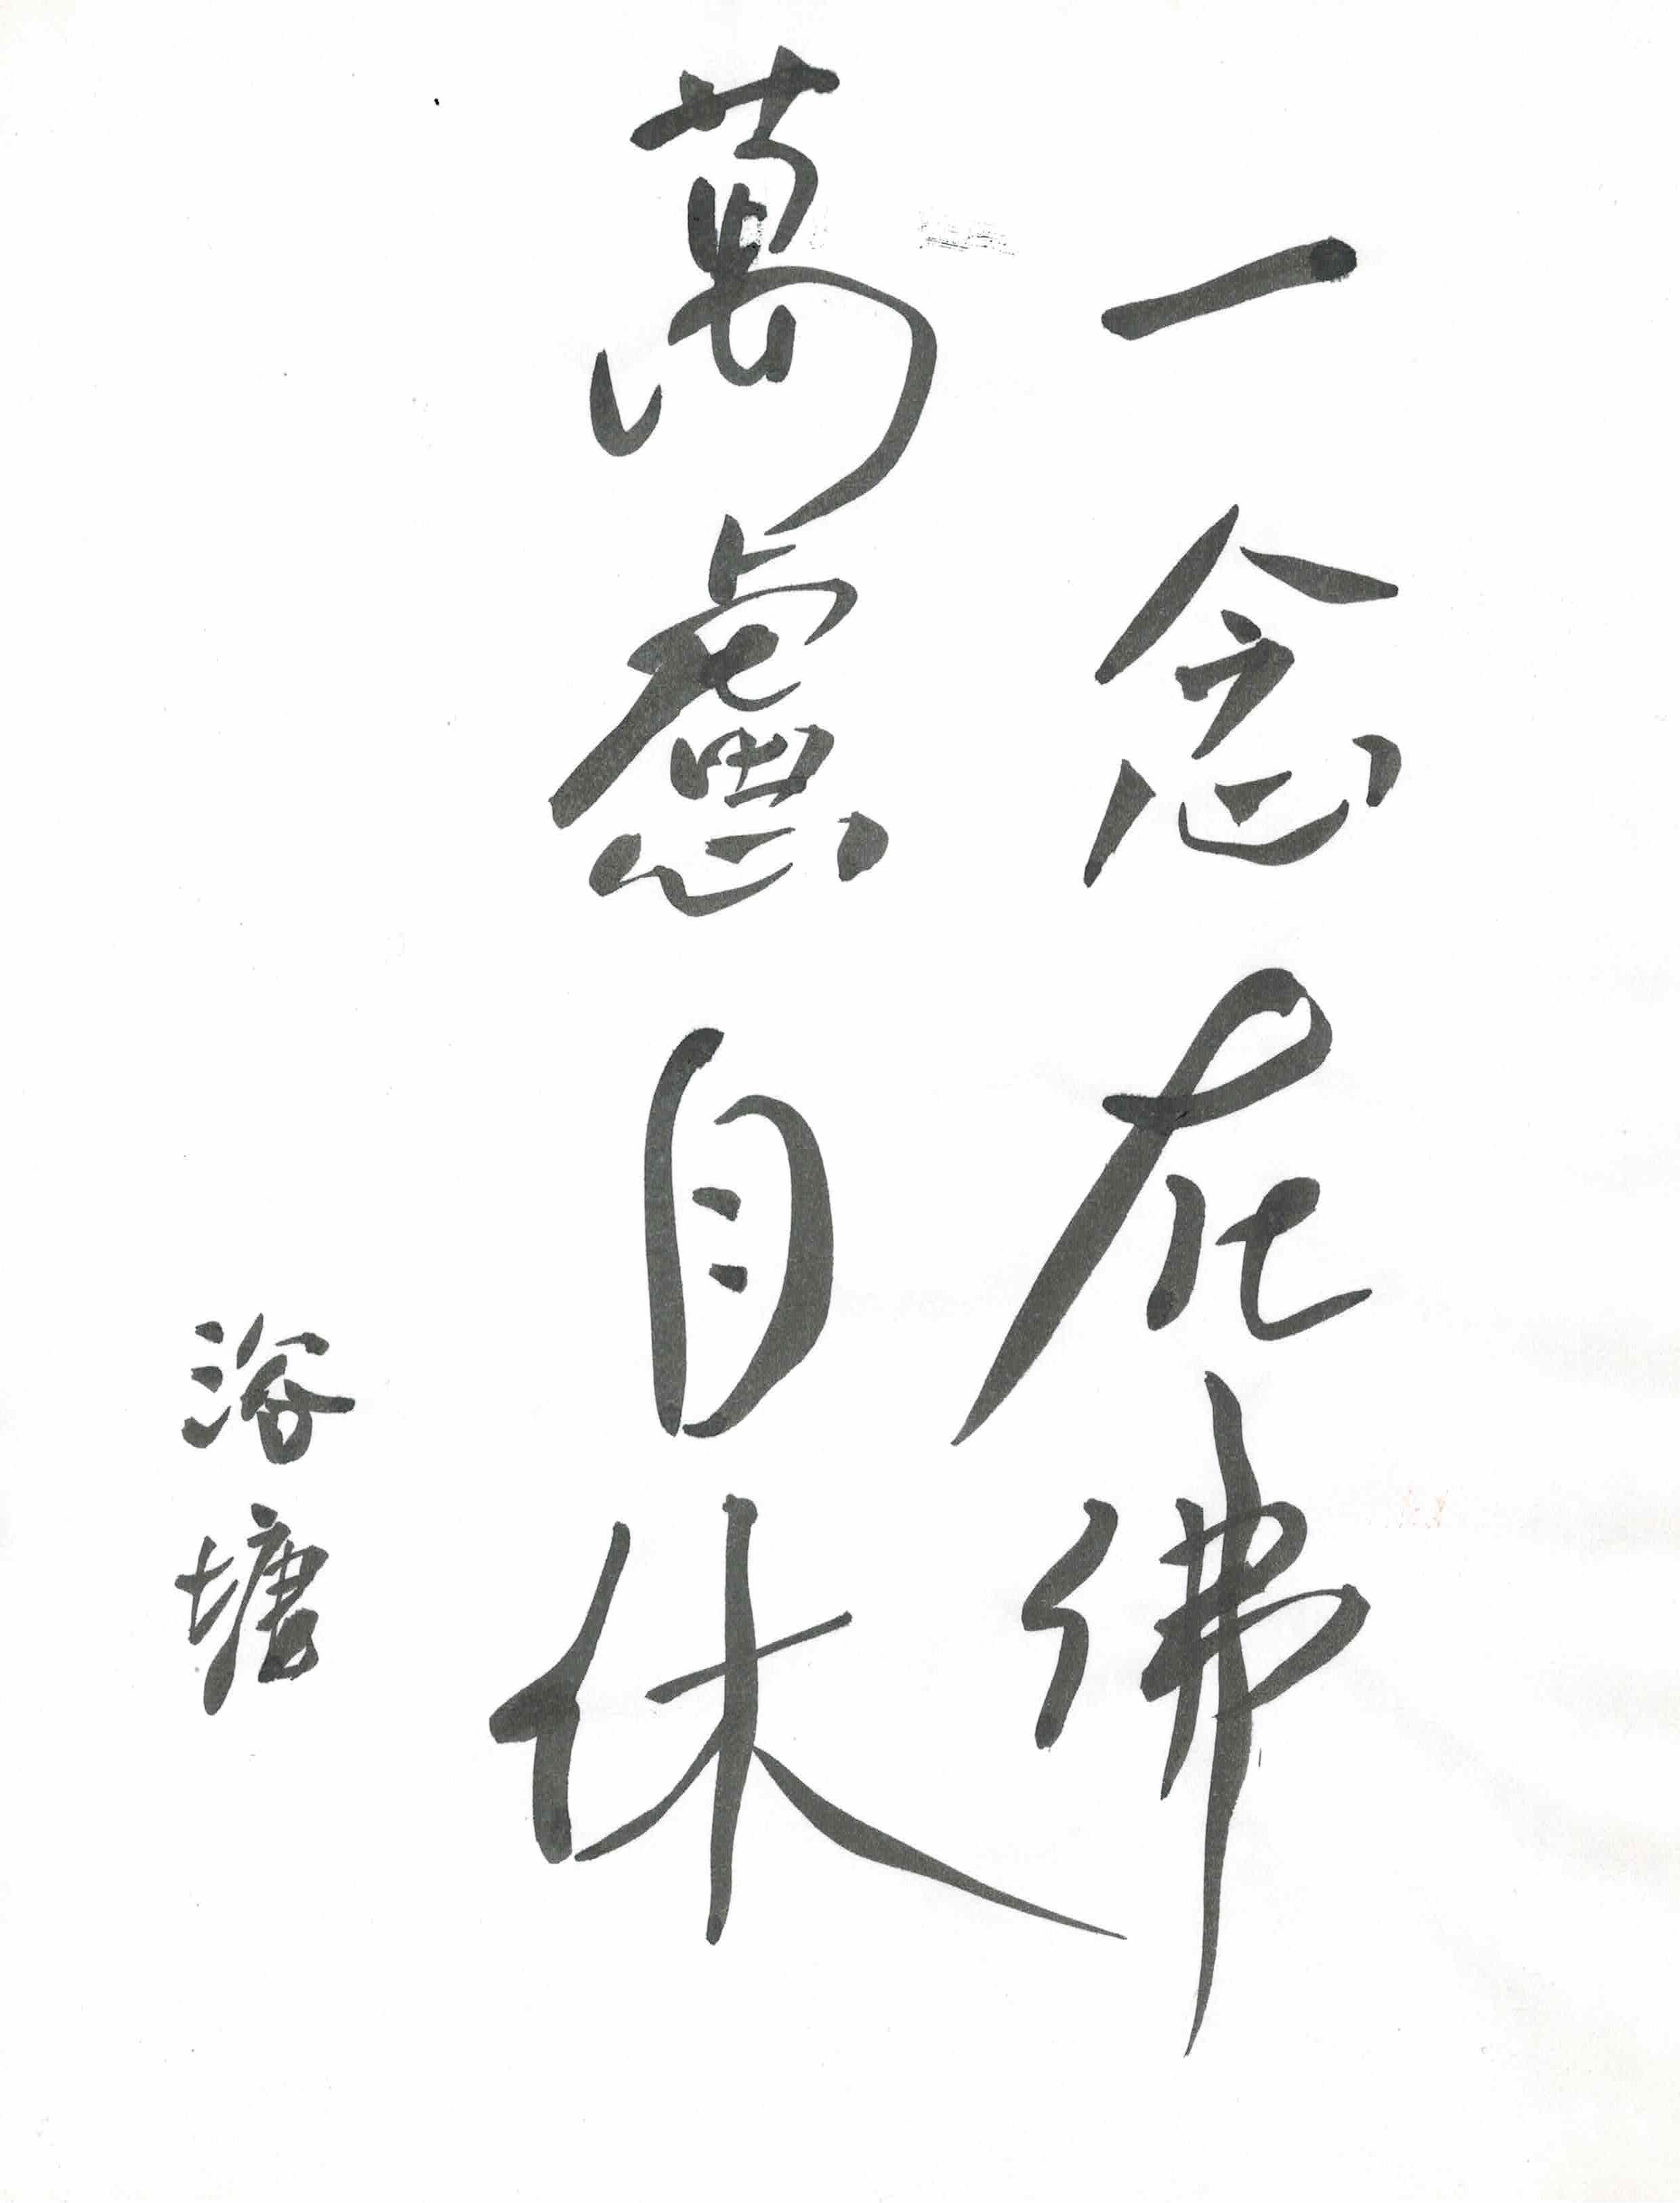 一念在佛
萬慮自休
浴塘